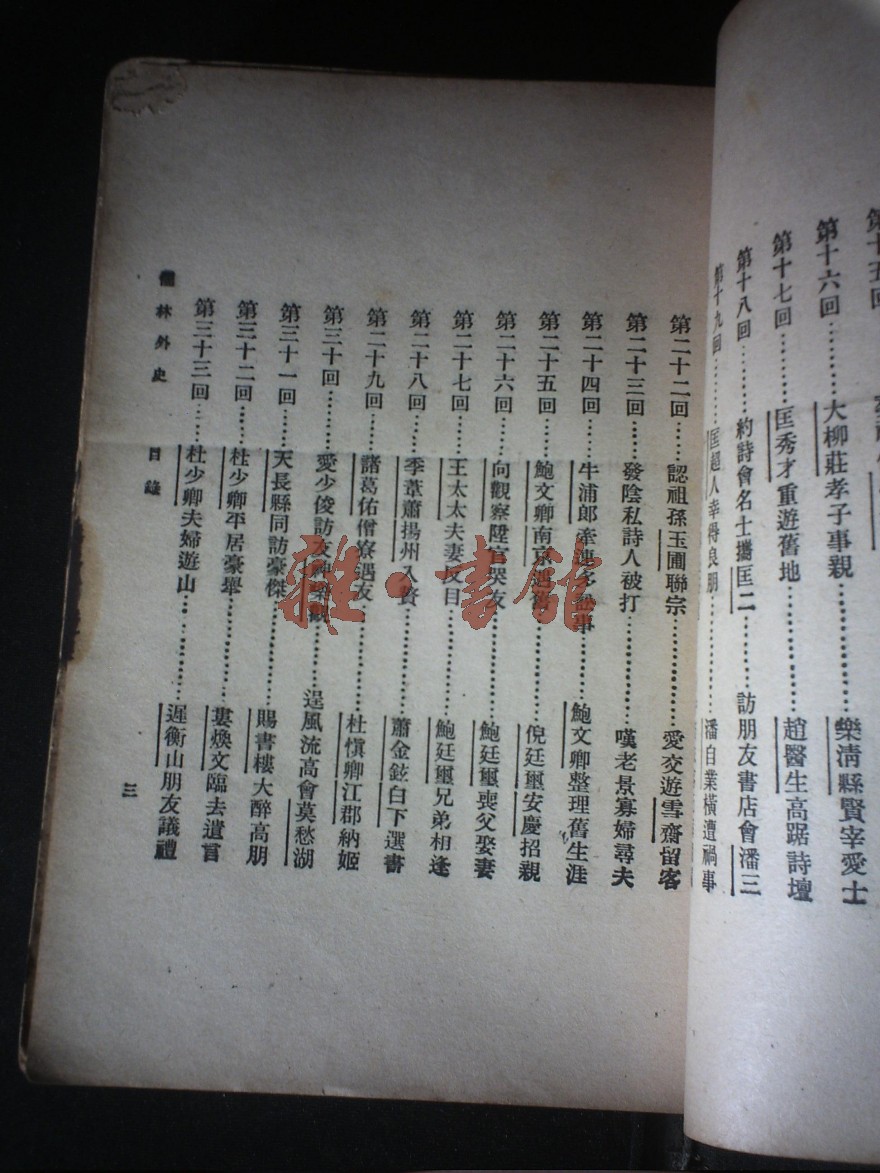 第十五回
第十六回………大柳莊孝子事親………樂清縣賢宰愛士
第十七回………匡秀才重遊舊地………趙醫生高踞詩壇
第十八回………約詩會名士攜匡二………訪朋友書店會潘三
第十九回………匡超人幸得良朋………潘自業橫遭禍事
第二十二回……認祖孫玉圃聯宗………愛交遊雪齋留客
第二十三回……發陰私詩人被打………嘆老景寡婦尋夫
第二十四回……牛浦郎牽連多訟事………鮑文卿整理舊生涯
第二十五回……鮑文卿南京遇舊………倪廷璽安慶招親
第二十六回……向觀察陞官哭友………鮑廷璽喪父娶妻
第二十七回……王太太夫妻反目………鮑廷璽兄弟相逢
第二十八回……季葦蕭揚州入贅………蕭金鉉白下選書
第二十九回……諸葛佑僧寮遇友………杜慎卿江郡納姬
第三十回………愛少俊訪友神樂觀………逞風流高會莫愁湖
第三十一回……天長縣同訪豪傑………賜書樓大醉高朋
第三十二回……杜少卿平居豪舉………婁煥文臨去遺言
第三十三回……杜少卿夫婦遊山………遲衡山朋友議禮
儒林外史 目錄
三
雜·書館